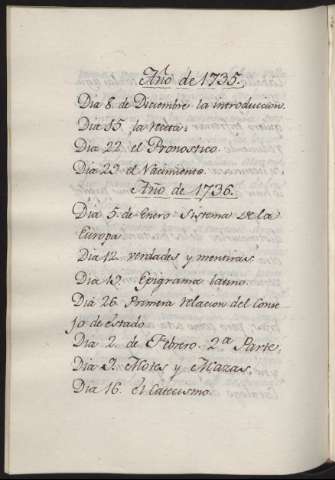 Año de 1735.
Dia 8 de Diciembre la introduccion.
Dia 15 la receta.
Dia 22 el Pronostico.
Dia 29 el Nacimiento.
Año de 1736.
Dia 5 de Enero Sistema de la
Europa
Dia 12 verdades y mentiras
Dia 19. Epigrama latino.
Dia 26 Primera relacion del Conse-
jo de Estado
Dia 2 de Febrero 2ª Parte.
Dia 9. Motes y Mazas.
Dia 16. el Catecismo.